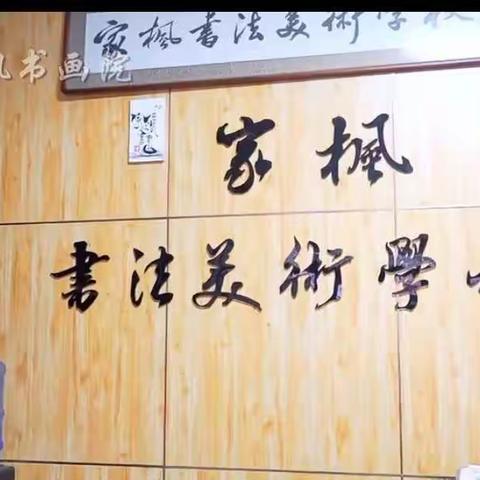 家楓書法美術學校
风书画院
家楓
書法美術學